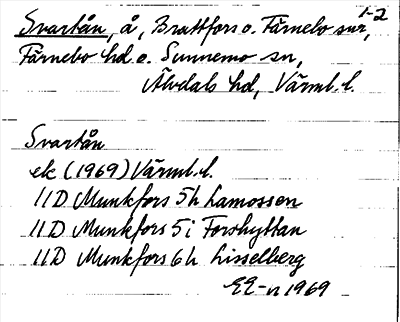 1-2
Svartån, å, Brattfors o. Färnebo snr,
Färnebo hd o. Sunnemo sn,
Älvdals hd, Värml. l.
Svartån
ek (1969) Värml. l.
11D Munkfors 5h Lamossen
11D Munkfors 5i Forshyttan
11D Munkfors 6h Lisselberg
1969